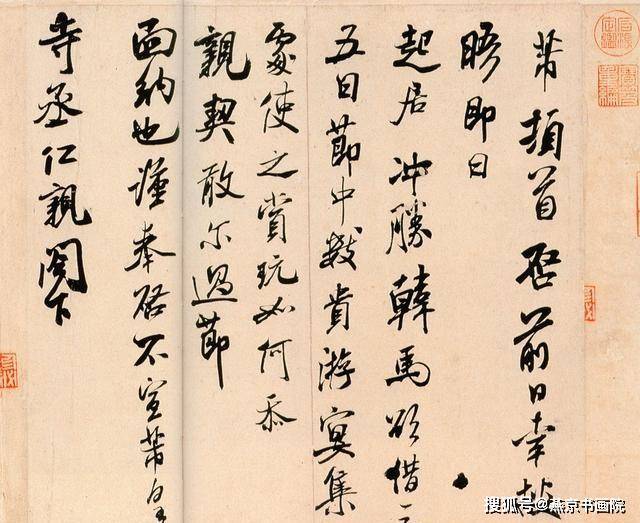 芾頓首启前日幸披
晤即日
起居冲勝韓馬欲借
五日節中數貴游宴集
處使之賞玩如何忝
親契敢尔過節
面納也謹奉啓不宣芾皇
寺丞仁親閣下
搜狐号@燕京书画院